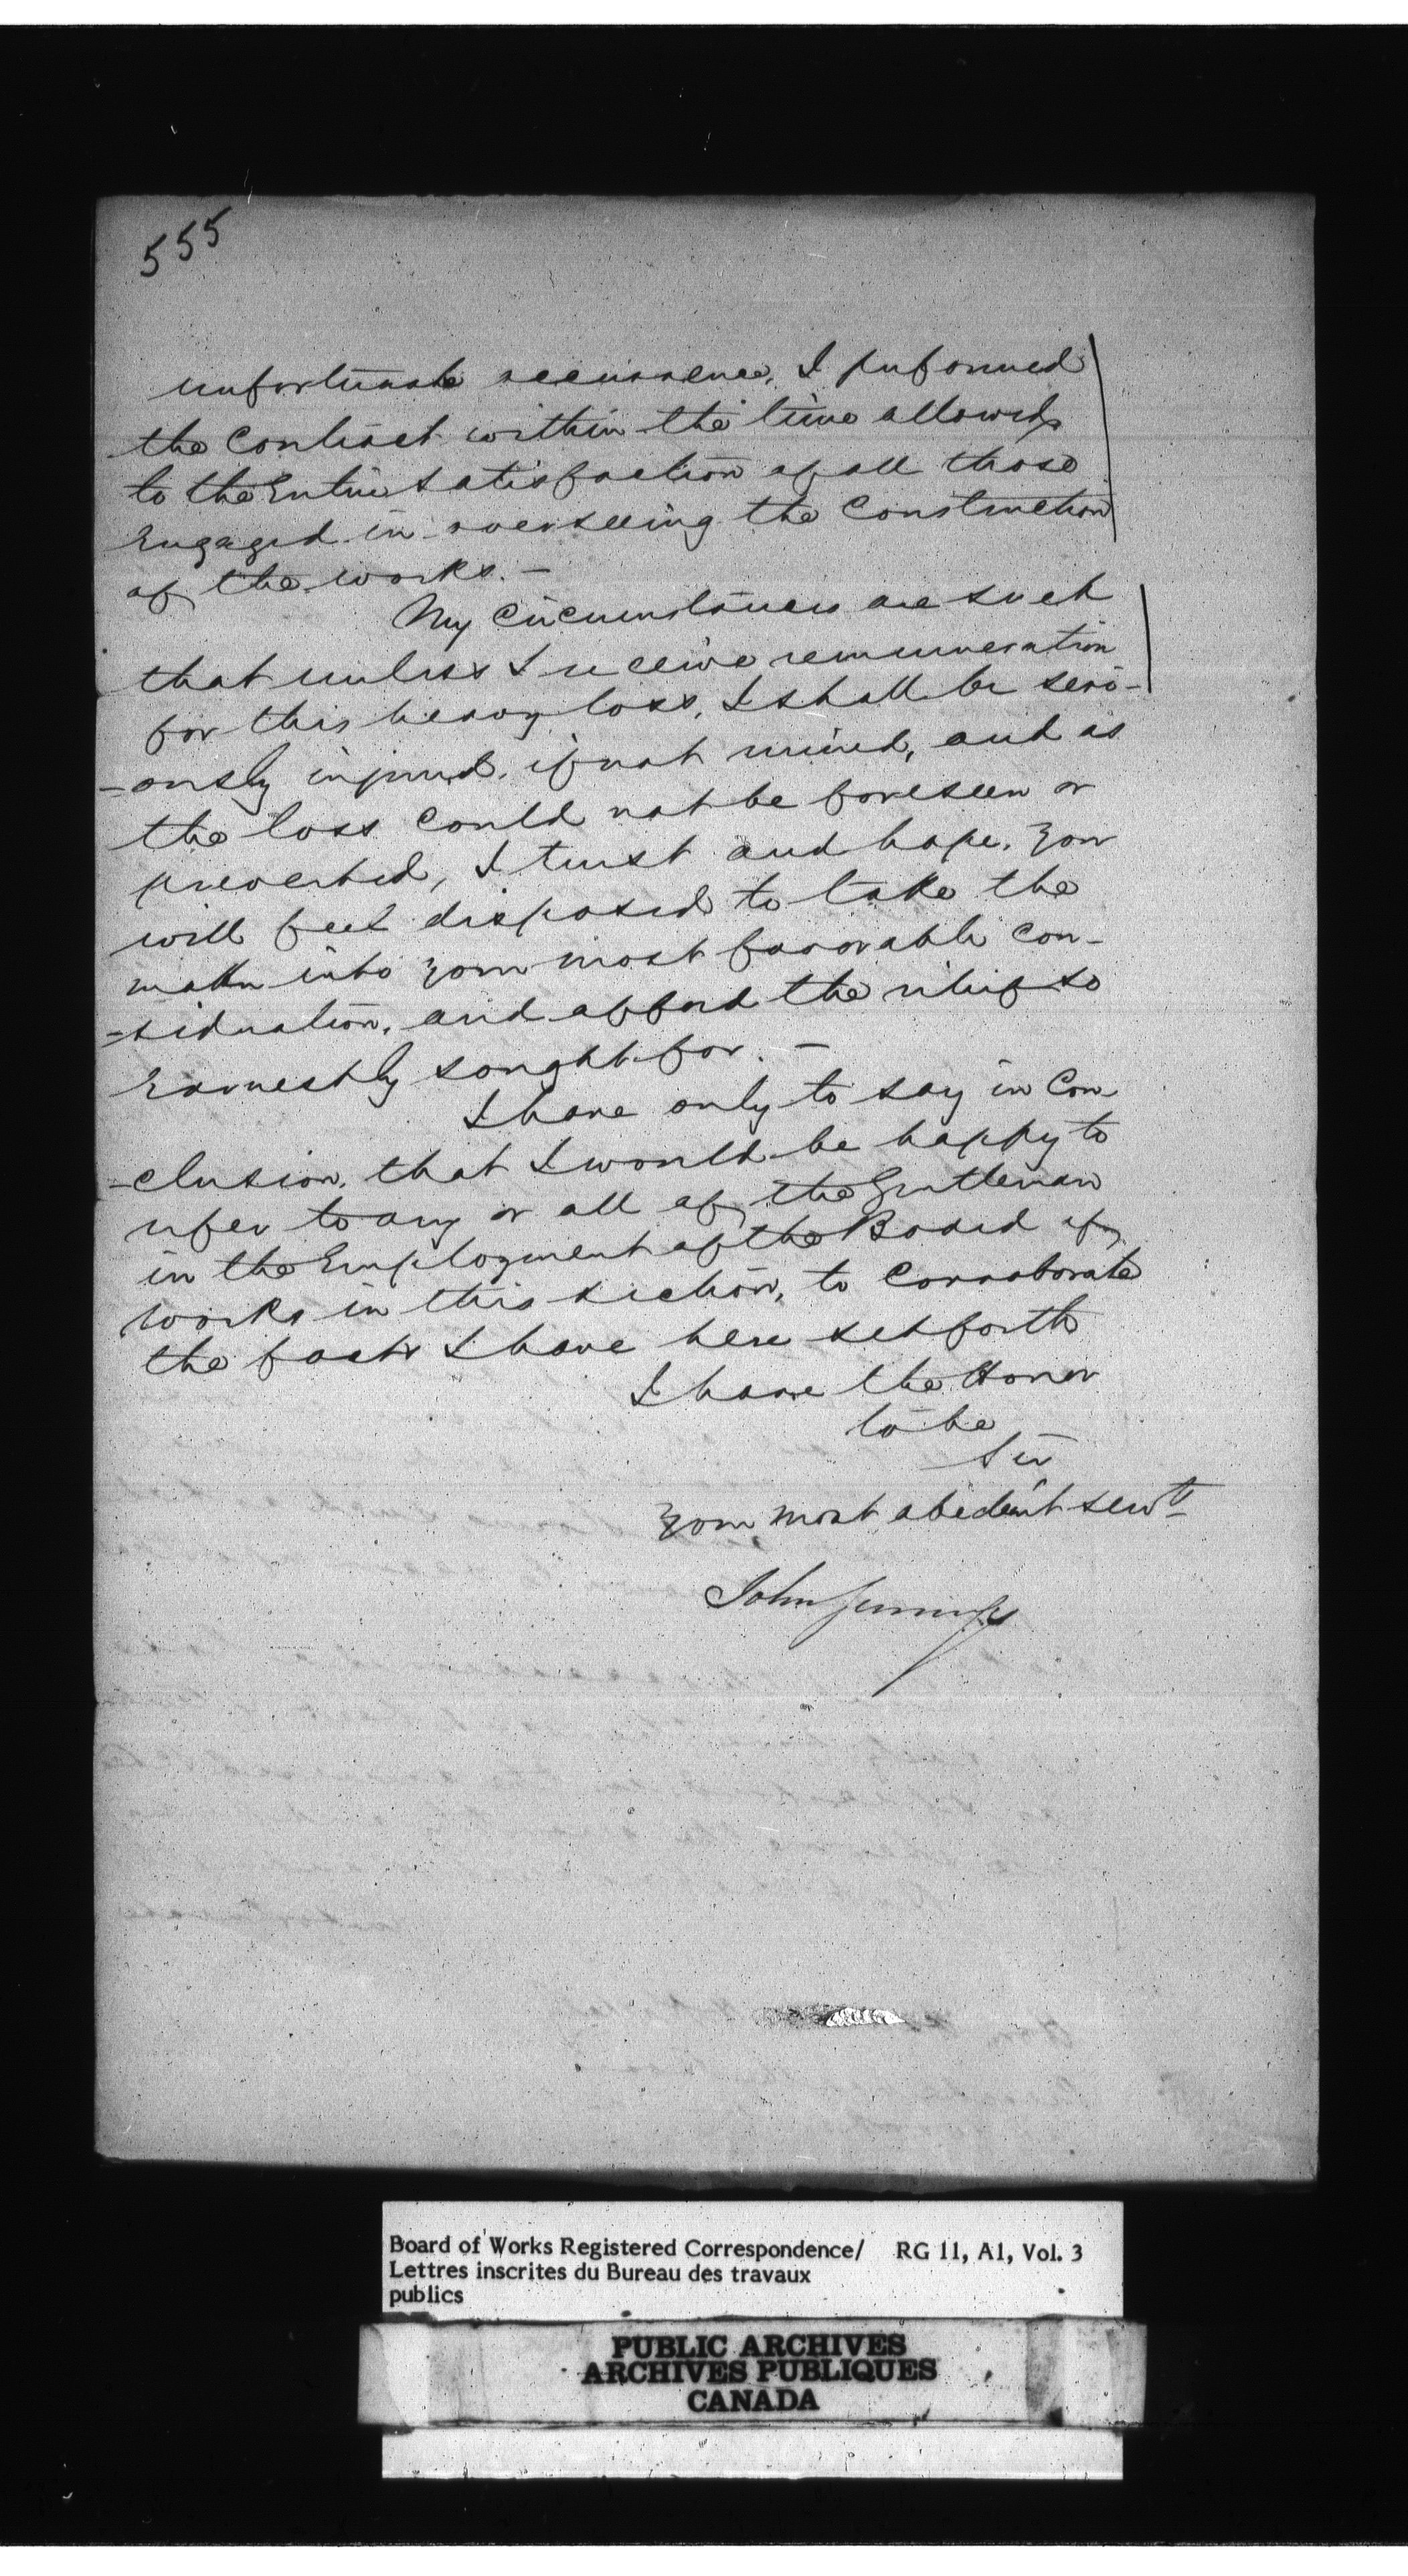 555
unfortunate occurrence, I performed
the Contract within the time allowed,
to the Entire satisfaction of all those
Engaged in overseeing the Construction
of the works. —
My circumstances are such
that unless I receive remuneration
for this heavy loss, I shall be seri-
-ously injured, if not ruined, and as
the loss could not be foreseen or
prevented, I trust and hope, you
will feel disposed to take the
matter into your most favorable con-
=sideration, and afford the relief so
Earnestly sought for. —
I have only to say in Con-
-clusion, that I would be happy to
refer to any or all of the Gentleman
in the Employment of the Board of
Works in this section, to Corroborate
the facts I have here set forth
I have the Honor
to be
Sir
Your most obedient servt
John Jennings
Board of Works Registered Correspondence/ RG 11, A1, Vol. 3
Lettres inscrites du Bureau des travaux
publics
PUBLIC ARCHIVES
ARCHIVES PUBLIQUES
CANADA